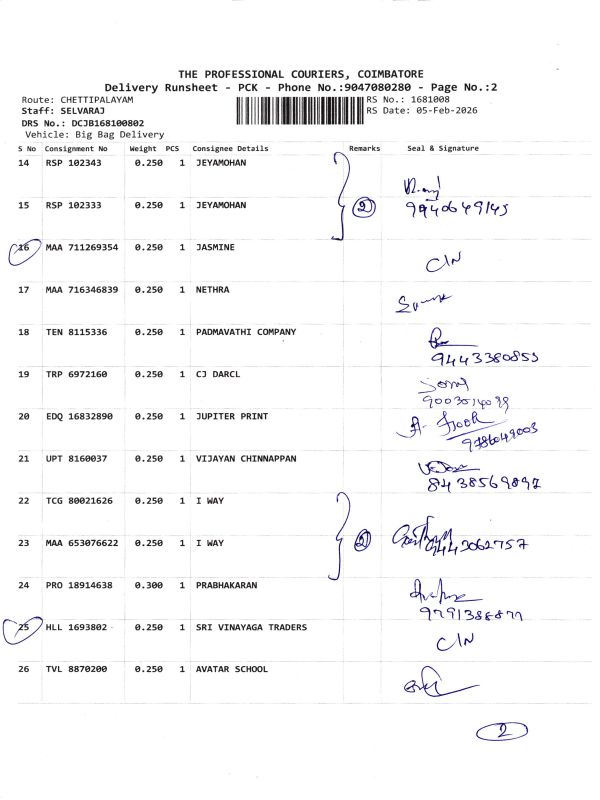 THE PROFESSIONAL COURIERS, COIMBATORE
Delivery Runsheet - PCK - Phone No.:9047080280 - Page No.:2
Route: CHETTIPALAYAM RS No.: 1681008
Staff: SELVARAJ RS Date: 05-Feb-2026
DRS No.: DCJB168100802
Vehicle: Big Bag Delivery
S No Consignment No Weight PCS Consignee Details Remarks Seal & Signature
14 RSP 102343 0.250 1 JEYAMOHAN
15 RSP 102333 0.250 1 JEYAMOHAN 2 9440649145
16 MAA 711269354 0.250 1 JASMINE C/N
17 MAA 716346839 0.250 1 NETHRA
18 TEN 8115336 0.250 1 PADMAVATHI COMPANY 9443380855
19 TRP 6972160 0.250 1 CJ DARCL
20 EDQ 16832890 0.250 1 JUPITER PRINT
21 UPT 8160037 0.250 1 VIJAYAN CHINNAPPAN 8438569897
22 TCG 80021626 0.250 1 I WAY
23 MAA 653076622 0.250 1 I WAY 2 9443062757
24 PRO 18914638 0.300 1 PRABHAKARAN
25 HLL 1693802 0.250 1 SRI VINAYAGA TRADERS C/N
26 TVL 8870200 0.250 1 AVATAR SCHOOL
2